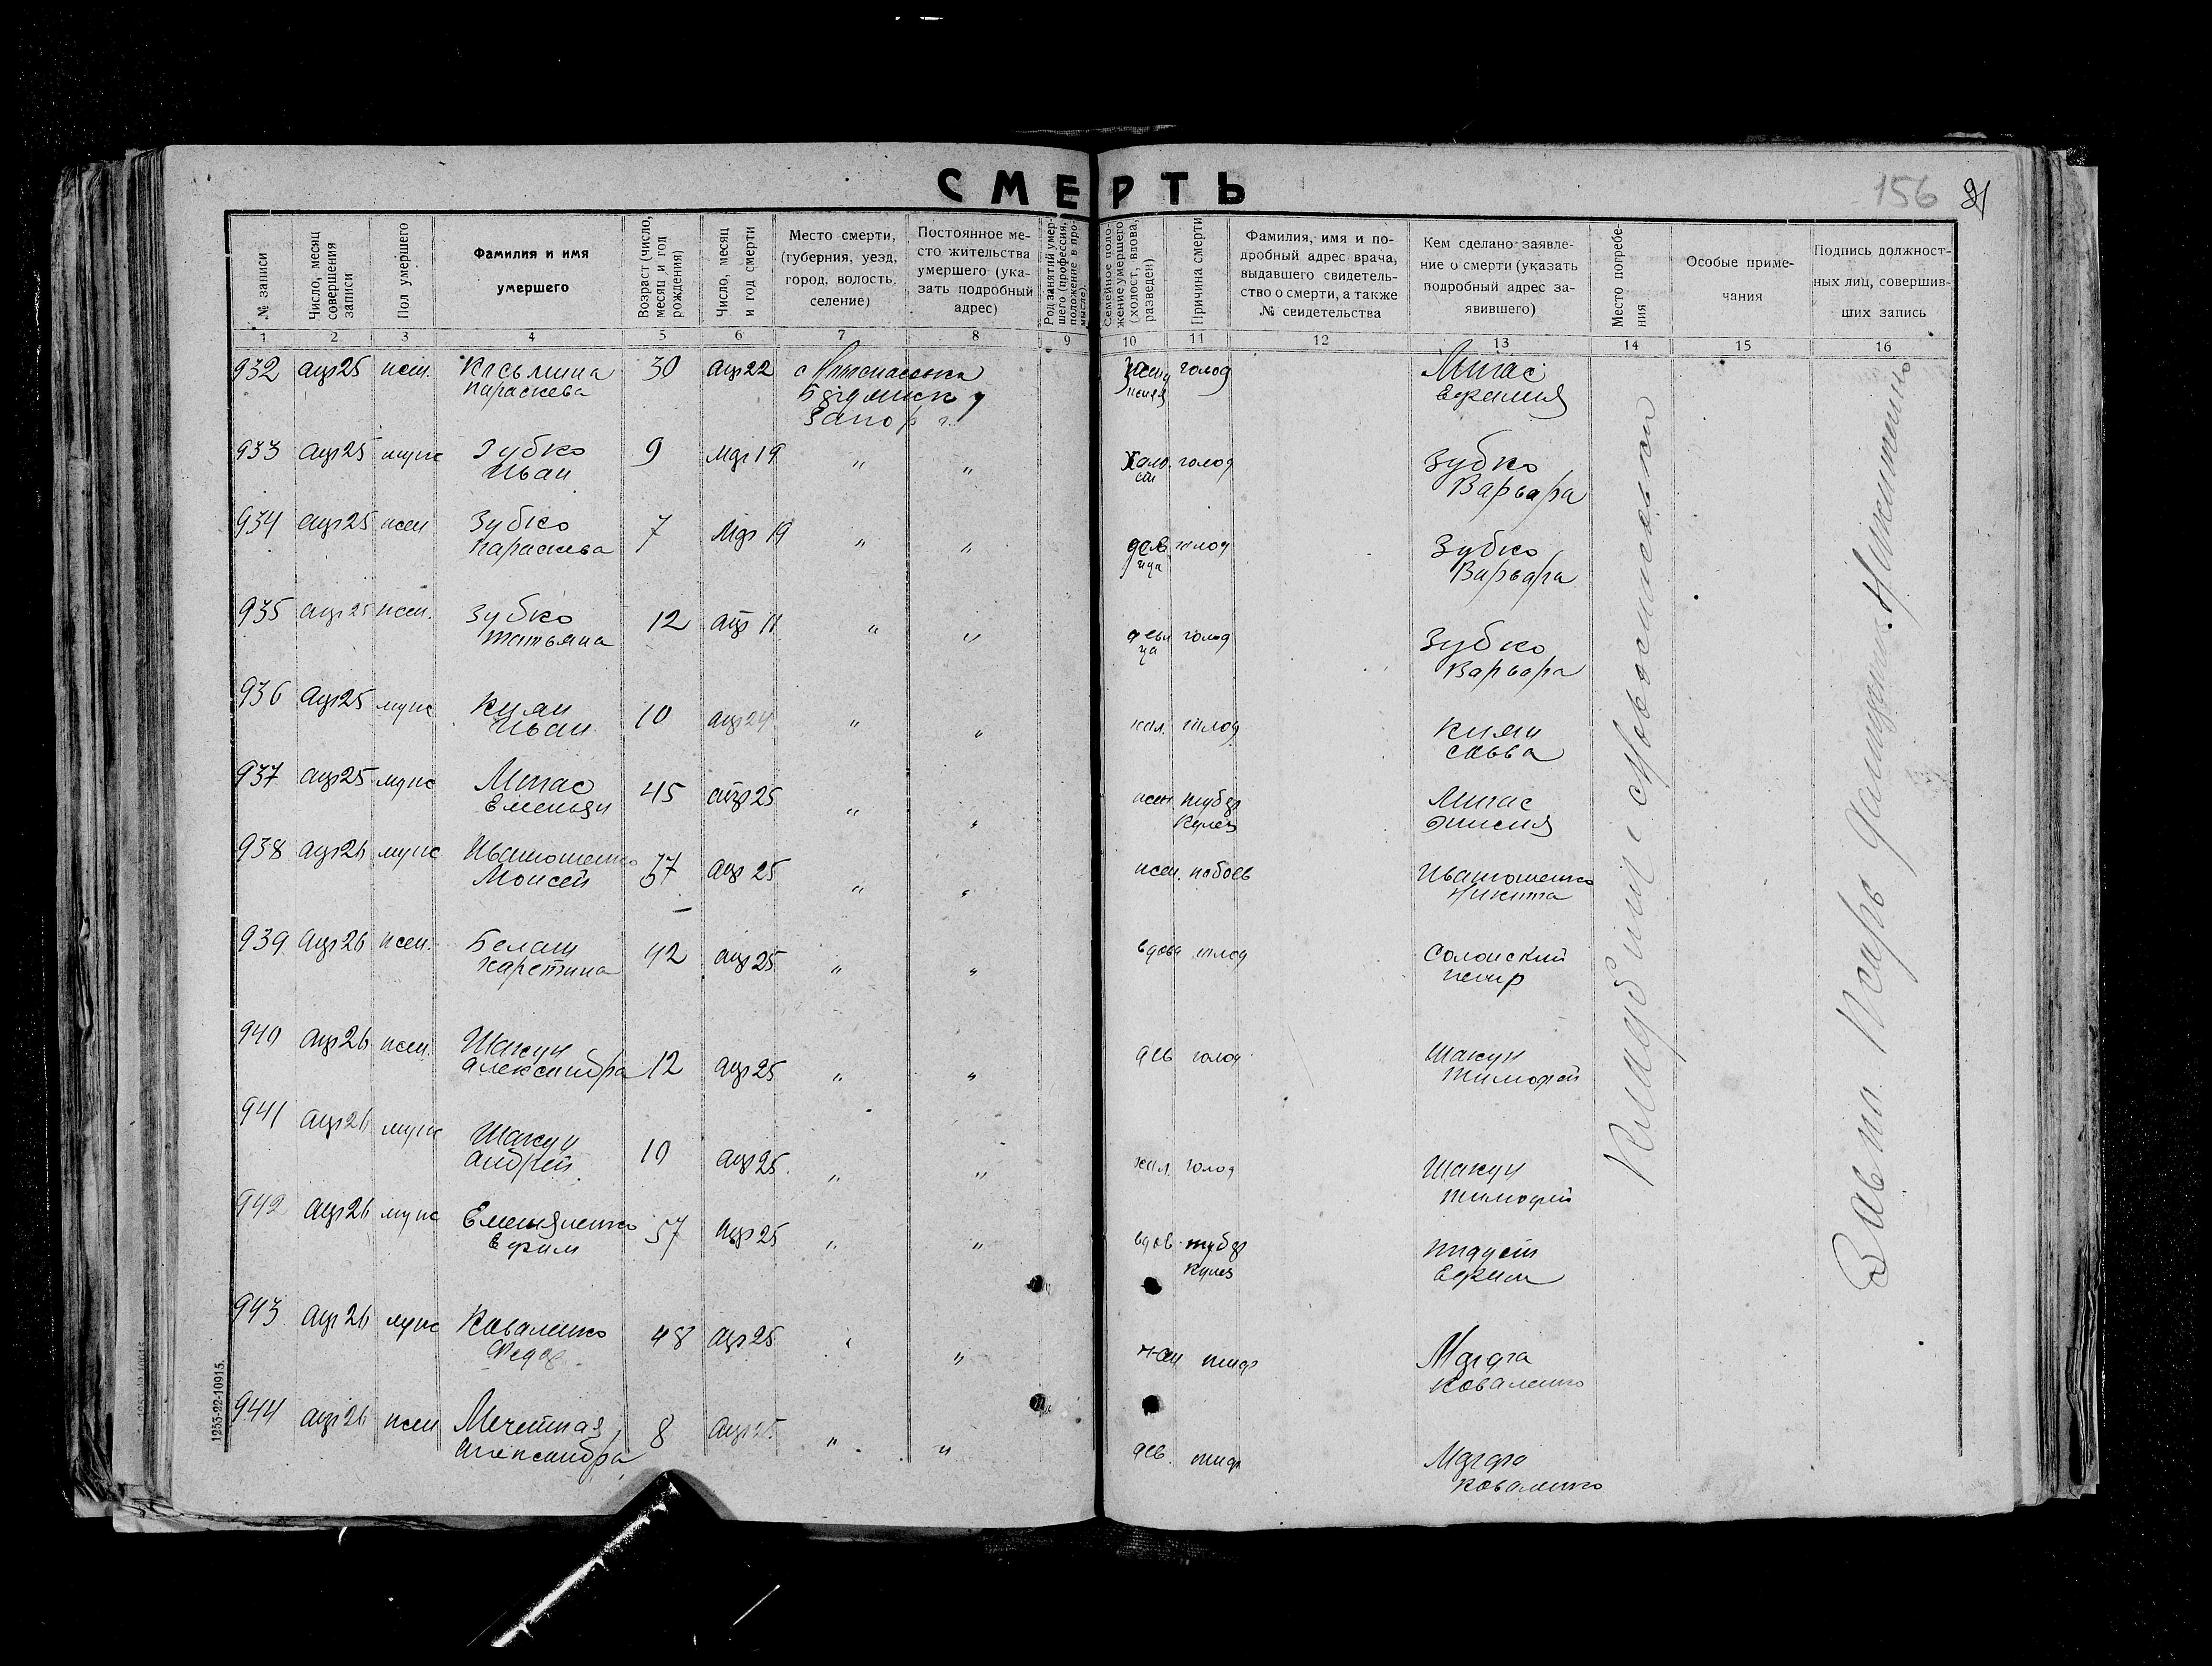 СМЕРТЬ
156 91
№ записи
Число, месяц совершения записи
Пол умершего
Фамилия и имя умершего
Возраст (число, месяц и год рождения)
Число, месяц и год смерти
Место смерти, (губерния, уезд, город, волость, селение)
Постоянное место жительства умершего (указать подробный адрес)
Род занятий умершего (профессия, положение в промысле).
Семейное положение умершего (холост, вдова, разведен)
Причина смерти
Фамилия, имя и подробный адрес врача, выдавшего свидетельство о смерти, а также № свидетельства
Кем сделано заявление о смерти (указать подробный адрес заявившего)
Место погребения
Особые примечания
Подпись должностных лиц, совершивших запись
1 2 3 4 5 6 7 8 9 10 11 12 13 14 15 16
932 апр 25 жен. Касьмина Параскева 30 апр 22 с Бердянск у Запор г. голод Мигас
933 апр 25 муж Зубко Иван 9 Мар 19 " " Холост голод Зубко Варвара
934 апр 25 жен Зубко Параскева 7 Мар 19 " " девица голод Зубко Варвара
935 апр 25 жен. Зубко Татьяна 12 апр 11 " " девица голод Зубко Варвара
936 апр 25 муж Киян Иван 10 апр 24 " " хол. голод Киян Савва
937 апр 25 муж Мигас Емельян 45 апр 25 " " жен туберкулез Мигас
938 апр 26 муж Ивашошенко Моисей 37 апр 25 " " жен. побоев Ивашошенко Никита
939 апр 26 жен. Белаш Харетина 42 апр 25 " " вдова голод Солонский Петр
940 апр 26 жен. Шакун Александра 12 апр 25 " " дев голод Шакун Тимофей
941 апр 26 муж Шакун Андрей 10 апр 25. " " хол. голод Шакун Тимофей
942 апр 26 муж Емельяненко Ефим 57 апр 25 " " вдов туберкулез Ефим
943 апр 26 муж Коваленко Федор 48 апр 25 " " жен тиф Марфа Коваленко
944 апр 26 жен Мечетная Александра 8 апр 25 " " дев. тиф Марфа Коваленко
Кладбище с Новоспасовки
Завпо. Псарь
1253-22-10915.